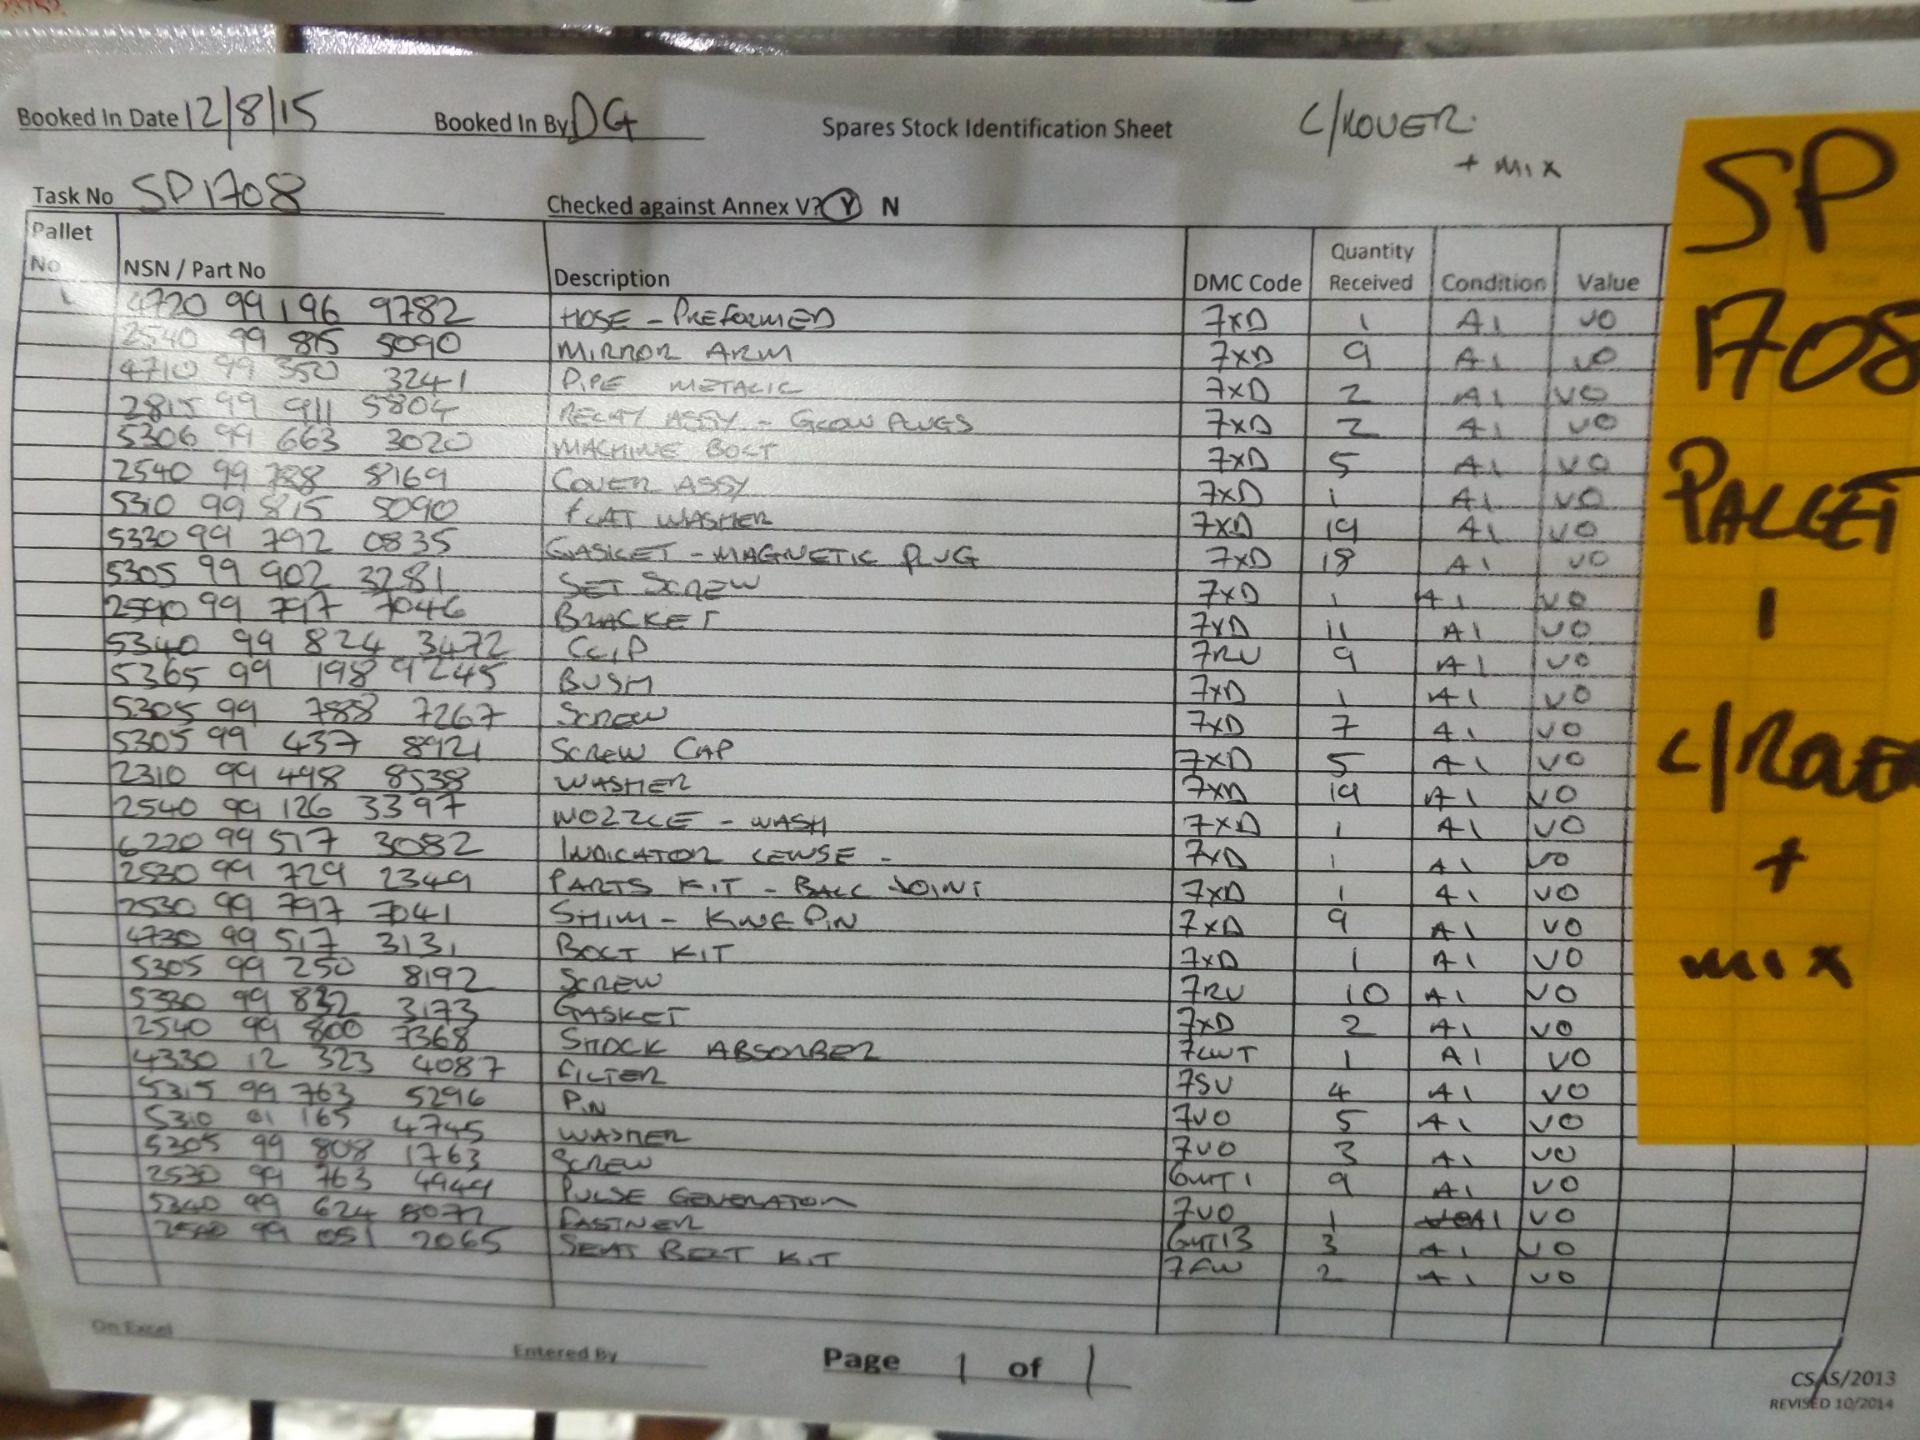 23752
Booked In Date 12/8/15 Booked In By DG Spares Stock Identification Sheet C/ROVER.
+ MIX
Task No SP1708 Checked against Annex V? Y N
Pallet No NSN / Part No Description DMC Code Quantity Received Condition Value
1 4720 99 196 9782 HOSE - PREFORMED 7XD 1 A1 VO
2540 99 815 5090 MIRROR ARM 7XD 9 A1 VO
4710 99 350 3241 PIPE METALIC 7XD 2 A1 VO
2815 99 911 5804 RELAY ASSY - GLOW PLUGS 7XD 2 A1 VO
5306 99 663 3020 MACHINE BOLT 7XD 5 A1 VO
2540 99 788 8169 COVER ASSY 7XD 1 A1 VO
5310 99 815 5090 FLAT WASHER 7XD 19 A1 VO
5330 99 792 0835 GASKET - MAGNETIC PLUG 7XD 18 A1 VO
5305 99 902 3281 SET SCREW 7XD 1 A1 VO
2590 99 797 7046 BRACKET 7XD 11 A1 VO
5340 99 824 3472 CLIP 7RU 9 A1 VO
5365 99 198 9245 BUSH 7XD 1 A1 VO
5305 99 788 7267 SCREW 7XD 7 A1 VO
5305 99 437 8921 SCREW CAP 7XD 5 A1 VO
2310 99 498 8538 WASHER 7XD 19 A1 VO
2540 99 126 3397 NOZZLE - WASH 7XD 1 A1 VO
6220 99 517 3082 INDICATOR LENSE - 7XD 1 A1 VO
2530 99 729 2349 PARTS KIT - BALL JOINT 7XD 1 A1 VO
2530 99 797 7041 SHIM - KINGPIN 7XD 9 A1 VO
4730 99 517 3131 BOLT KIT 7XD 1 A1 VO
5305 99 250 8192 SCREW 7RU 10 A1 VO
5330 99 832 3173 GASKET 7XD 2 A1 VO
2540 99 800 7368 SHOCK ABSORBER 7LWT 1 A1 VO
4330 12 323 4087 FILTER 7SU 4 A1 VO
5315 99 763 5296 PIN 7UO 5 A1 VO
5310 01 165 4745 WASHER 7UO 3 A1 VO
5305 99 808 1763 SCREW 6MT1 9 A1 VO
2530 99 763 4949 PULSE GENERATOR 7UO 1 A1 VO
5340 99 624 8077 FASTNER 6MT13 3 A1 VO
2540 99 051 2065 SEAT BELT KIT 7FW 2 A1 VO
On Excel Entered By Page 1 of 1
CSAS/2013
REVISED 10/2014
SP
1708
PALLET
1
C/ROVER
+
MIX